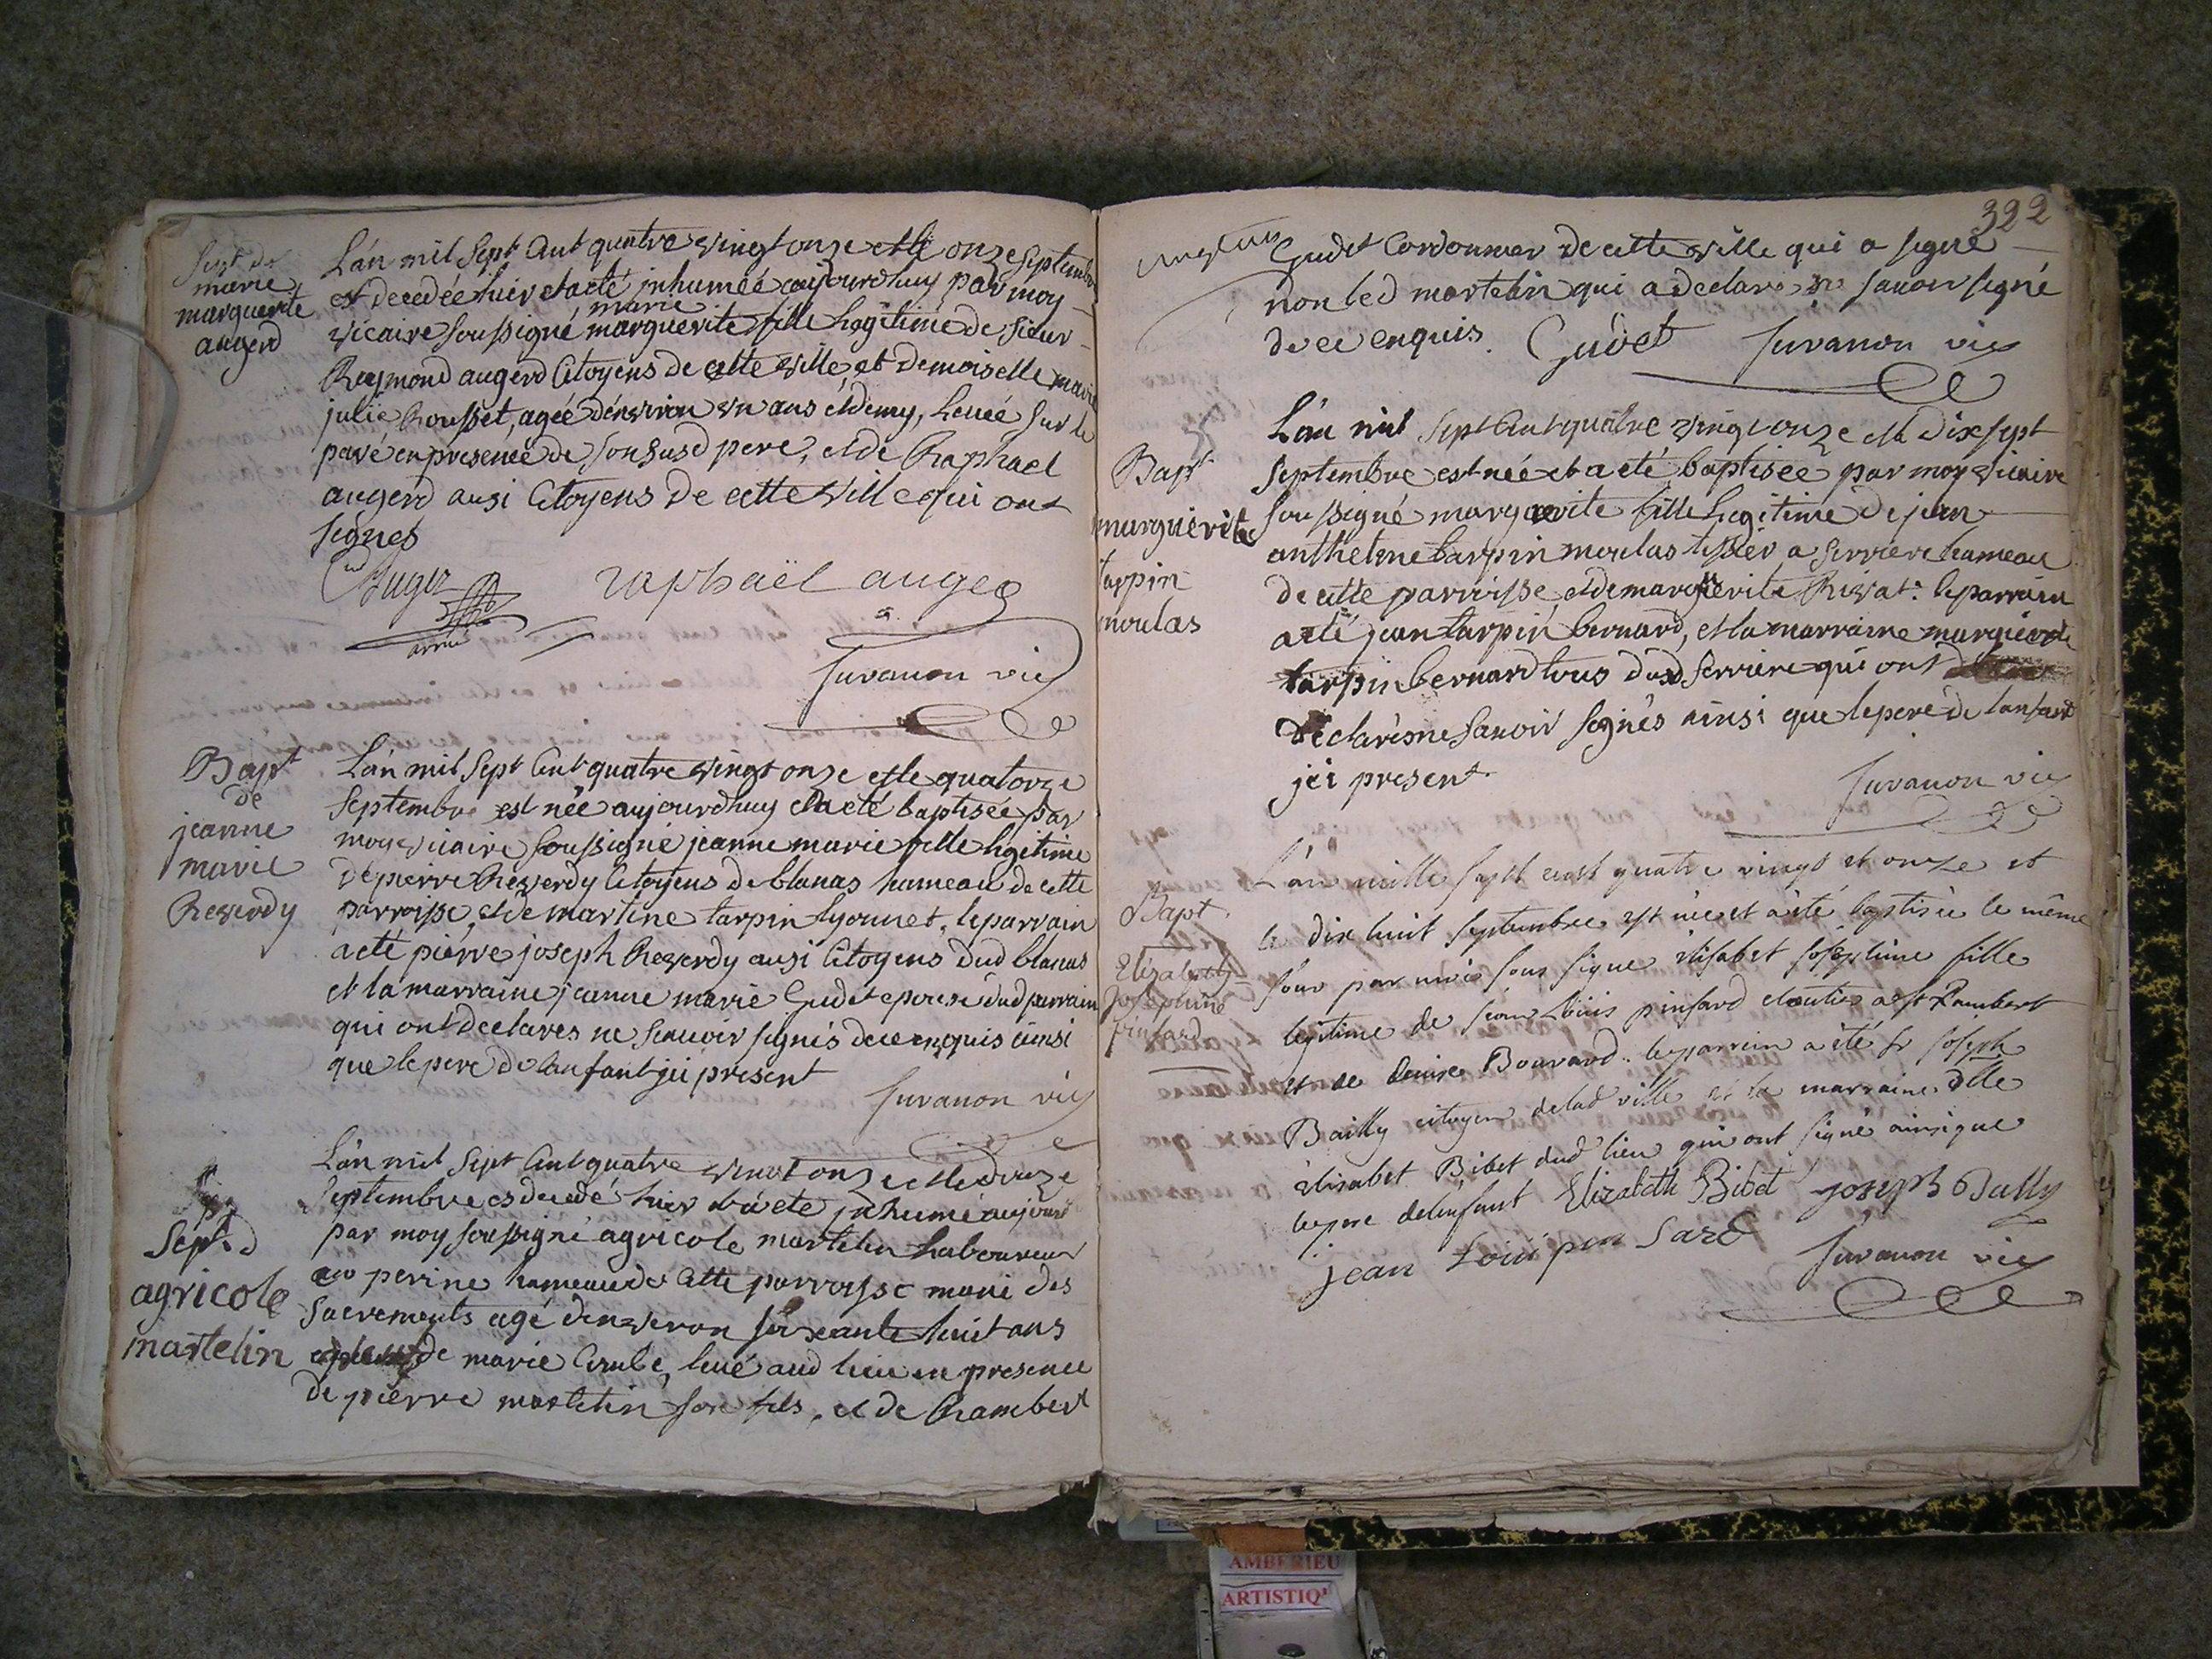 Sept de
marie
marguerite
augerd
L'an mil Sept Cent quatre vingt onze et le onze Septembre
est decedée hier et a eté inhumée aujourdhuy par moy
vicaire soussigné marie marguerite fille legitime de Sieur
Raymond augerd Citoyens de cette ville et demoiselle marie
julie Rousset, agée d'environ un ans et demy, Levée sur le
pavé en presence de son susd pere, et de Raphael
augerd ausi Citoyens de cette ville qui ont
Signes
Auger
ainé
raphaël auger
Juvanon vic
Bapt
de
jeanne
marie
Reverdy
L'an mil Sept Cent quatre vingt onze et le quatorze
Septembre est née aujourdhuy et a eté baptisée par
moy vicaire soussigné jeanne marie fille legitime
de pierre Reverdy Citoyens de blanas hameau de cette
parroisse, et de martine tarpin lyonnet, le parrain
a eté pierre joseph Reverdy ausi Citoyens dud blanas
et la marraine jeanne marie Gudet epouse dud parrain
qui ont declares ne scavoir signés de ce enquis ainsi
que le pere de lanfant ici present
Juvanon vic
Sept. d
agricole
martelin
L'an mil Sept Cent quatre vingt onze et le
Septembre es decedé hier et a ete inhumé aujourd
par moy soussigné agricole martelin Laboureur
au perine hameau de Cette parroisse muni des
Sacrements agé denviron soixante huit ans
de marie, levé aud lieu en presence
de pierre martelin son fils, et de Rambert
322
Gudet Cordonnier de cette ville qui a signé
non led martelin qui a declaré ne savoir signé
de ce enquis. Gudet Juvanon vic
Bapt
marguérite
tarpin
moulas
L'an mil Sept Cent quatre vingt onze et le dix sept
Septembre est née et a eté baptisée par moy vicaire
soussigné marguerite fille Legitime de jean
anthelme tarpin moulas tissier a serriere hameau
de cette parroisse, et de marguerite Rivat. le parrain
a eté jean tarpin bernard, et la marraine marguerite
tarpin bernard tous dud serriere qui ont
déclarésne savoir signés ainsi que le pere de lanfant
ici present
Juvanon vic
Bapt.
Elizabeth
Josephine
pinsard
L'an mille sept cent quatre vingt et onze et
le dix huit septembre est née et a été baptisée le même
jour par moi sous signé élisabet joséphine fille
légitime de jean Loüis pinsard cloutier a st Rambert
et de denise Bouvard. le parrein a été sr joseph
Bailly citoyen de lad ville et la marraine dlle
élisabet Bibet dud lieu qui ont signé ainsi que
le pere de l'enfant Elizabeth Bibet joseph Bally
jean Loüi pin sard
Juvanon vic
AMBERIEU
ARTISTIQ'